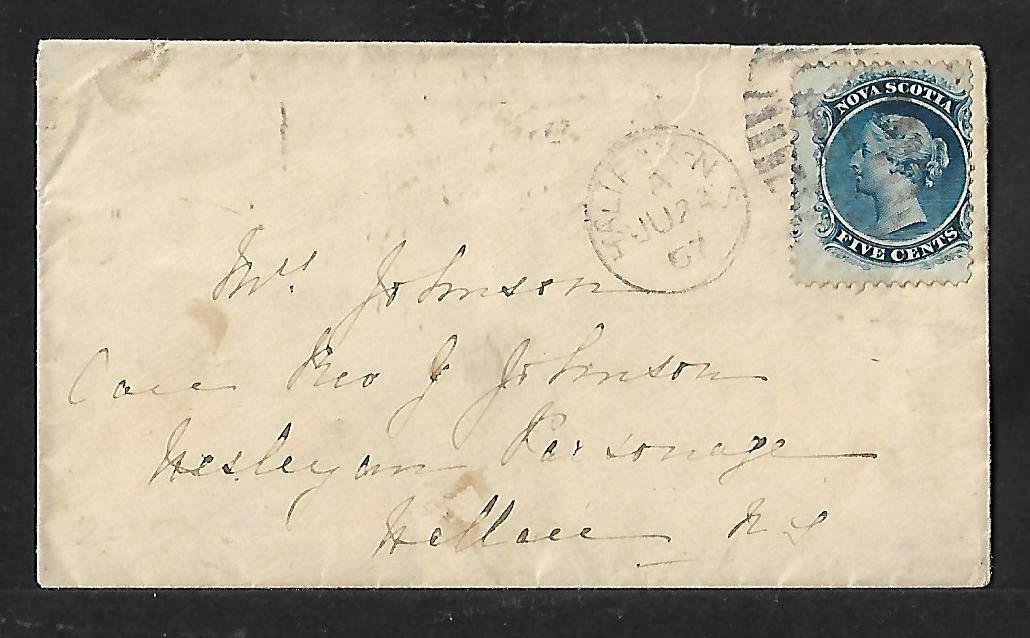 NOVA SCOTIA
FIVE CENTS
HALIFAX N.S
A
JU 24
67
Mrs Johnson
Care Rev J Johnson
Wesleyan Parsonage
Wallace N S